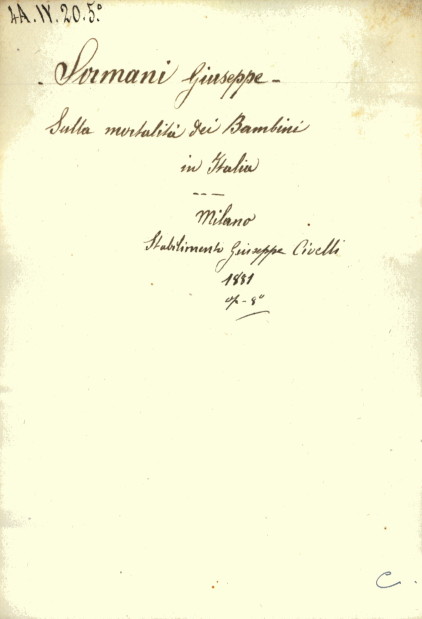 4A.IV.20.5°
- Sormani Giuseppe -
Sulla mortalità dei Bambini
in Italia
Milano
Stabilimento Giuseppe Civelli
1881
op - 8°
C.